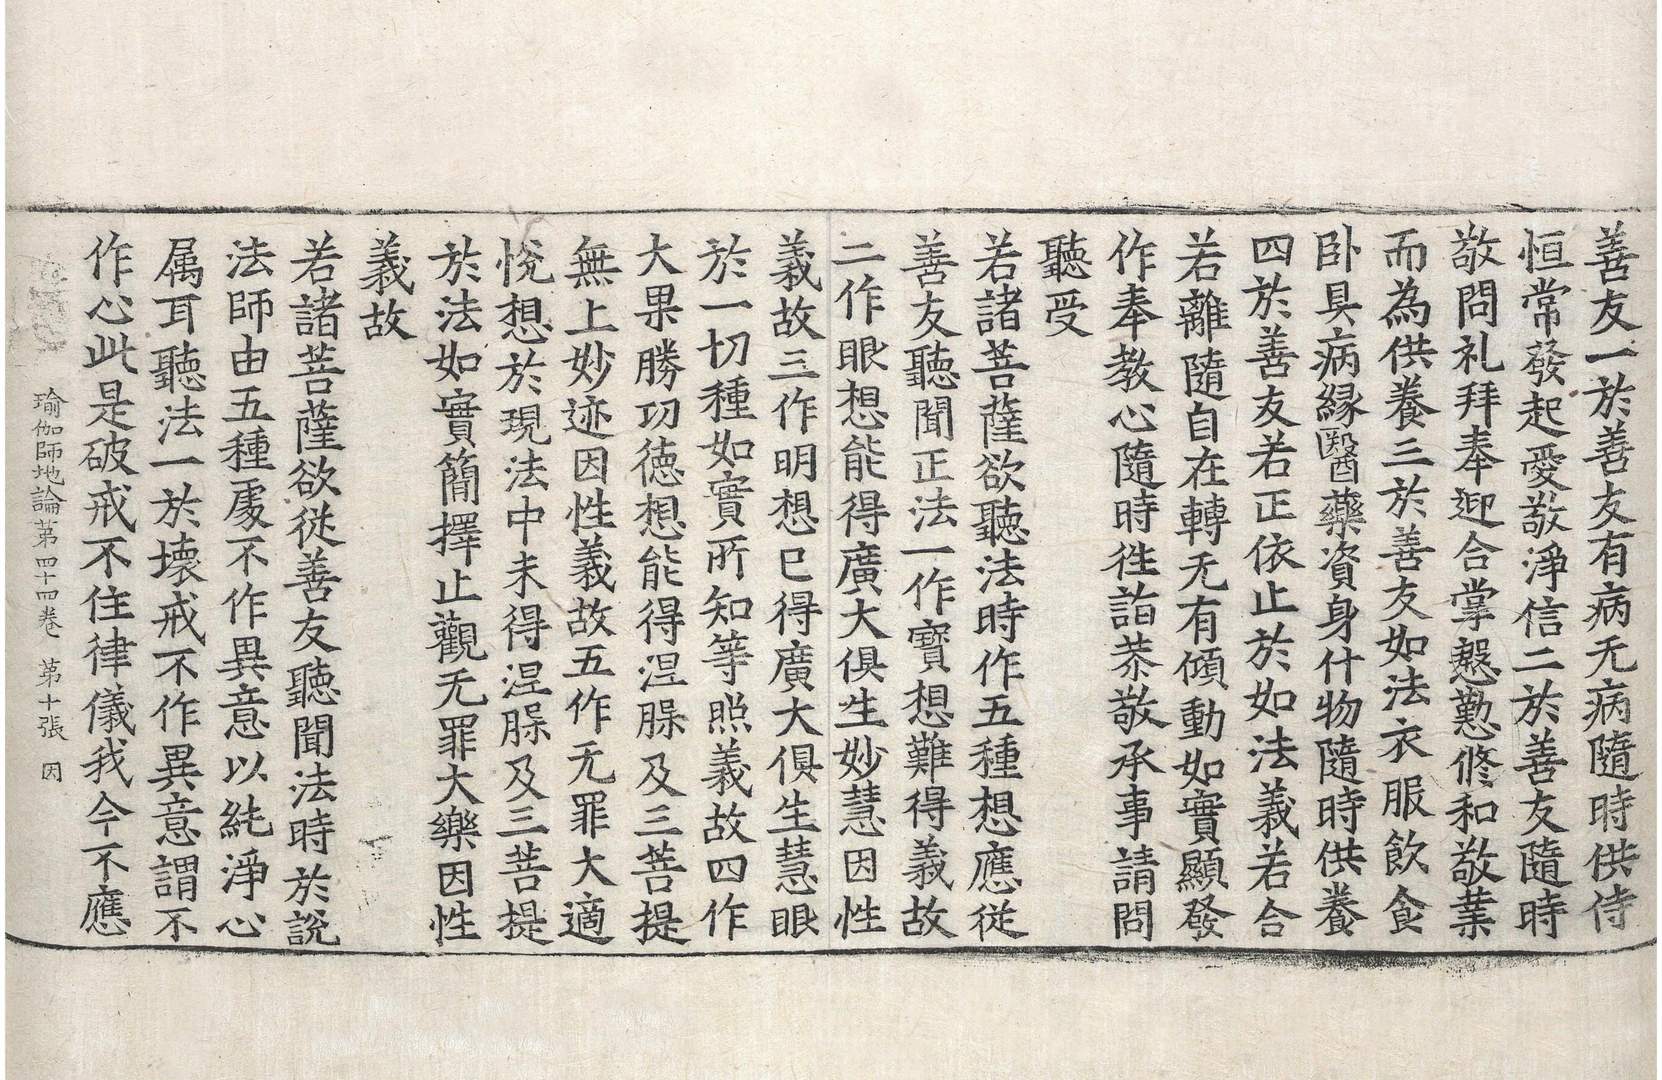 善友一於善友有病无病隨時供侍
恒常發起愛敬淨信二於善友隨時
敬問礼拜奉迎合掌慇懃修和敬業
而為供養三於善友如法衣服飲食
卧具病縁醫藥資身什物隨時供養
四於善友若正依止於如法義若合
若離隨自在轉无有傾動如實顯發
作奉教心隨時往詣恭敬承事請問
聽受
若諸菩薩欲聽法時作五種想應從
善友聽聞正法一作寶想難得義故
二作眼想能得廣大俱生妙慧因性
義故三作明想已得廣大俱生慧眼
於一切種如實所知等照義故四作
大果勝功德想能得涅槃及三菩提
無上妙迹因性義故五作无罪大適
悅想於現法中未得涅槃及三菩提
於法如實簡擇止觀无罪大樂因性
義故
若諸菩薩欲從善友聽聞法時於說
法師由五種處不作異意以純淨心
属耳聽法一於壞戒不作異意謂不
作心此是破戒不住律儀我今不應
瑜伽師地論第四十四卷 第十張 因